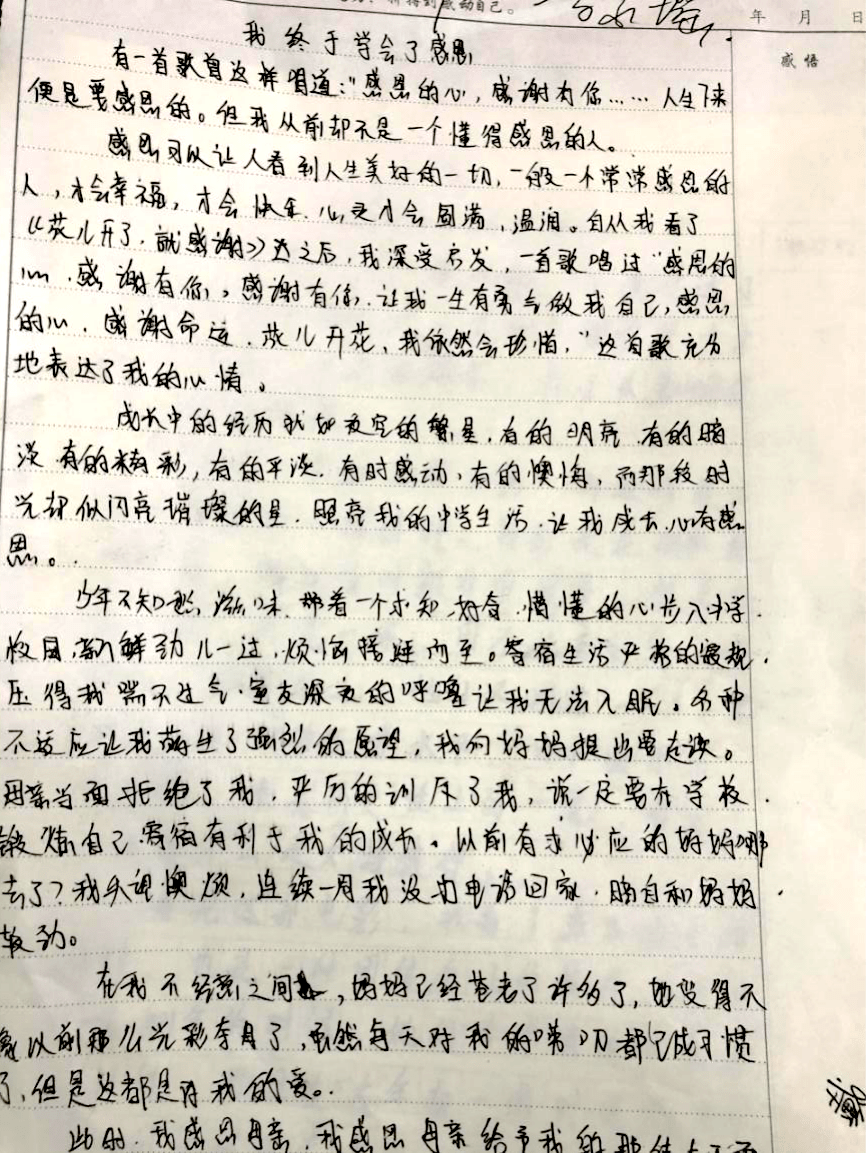 得到感动自己。
年 月 日
感悟
我终于学会了感恩
有一首歌曾这样唱道:"感恩的心,感谢有你……人生下来
便是要感恩的。但我从前却不是一个懂得感恩的人。
感恩可以让人看到人生美好的一切,一般一个常常感恩的
人,才会幸福,才会快乐.心灵才会圆满,温润。自从我看了
《花儿开了,就感谢》之后,我深受启发,一首歌唱过"感恩的
心.感谢有你,感谢有你.让我一生有勇气做我自己,感恩
的心.感谢命运.花儿开花,我依然会珍惜,"这首歌充分
地表达了我的心情。
成长中的经历犹如夜空的繁星,有的明亮.有的暗
淡.有的精彩,有的平淡.有时感动,有的懊悔,而那段时
光却似闪亮璀璨的星.照亮我的中学生活.让我成长.心有感
恩。
少年不知愁滋味.带着一个求知.好奇.懵懂的心步入中学.
校园.新鲜劲儿一过,烦恼接踵而至。寄宿生活严格的校规.
压得我喘不过气.室友深夜的呼噜让我无法入眠。各种
不适应让我萌生了强烈的愿望,我向妈妈提出要走读。
母亲当面拒绝了我,严厉的训斥了我,说一定要在学校.
锻炼自己.寄宿有利于我的成长。以前有求必应的好妈妈哪
去了?我失望懊烦,连续一月我没力电话回家.暗自和妈妈
较劲。
在我不经意之间,妈妈已经苍老了许多了,她变得不
象以前那么光彩夺目了,虽然每天对我的唠叨都已成习惯
了,但是这都是对我的爱。
此时.我感恩母亲.我感恩母亲给予我的那